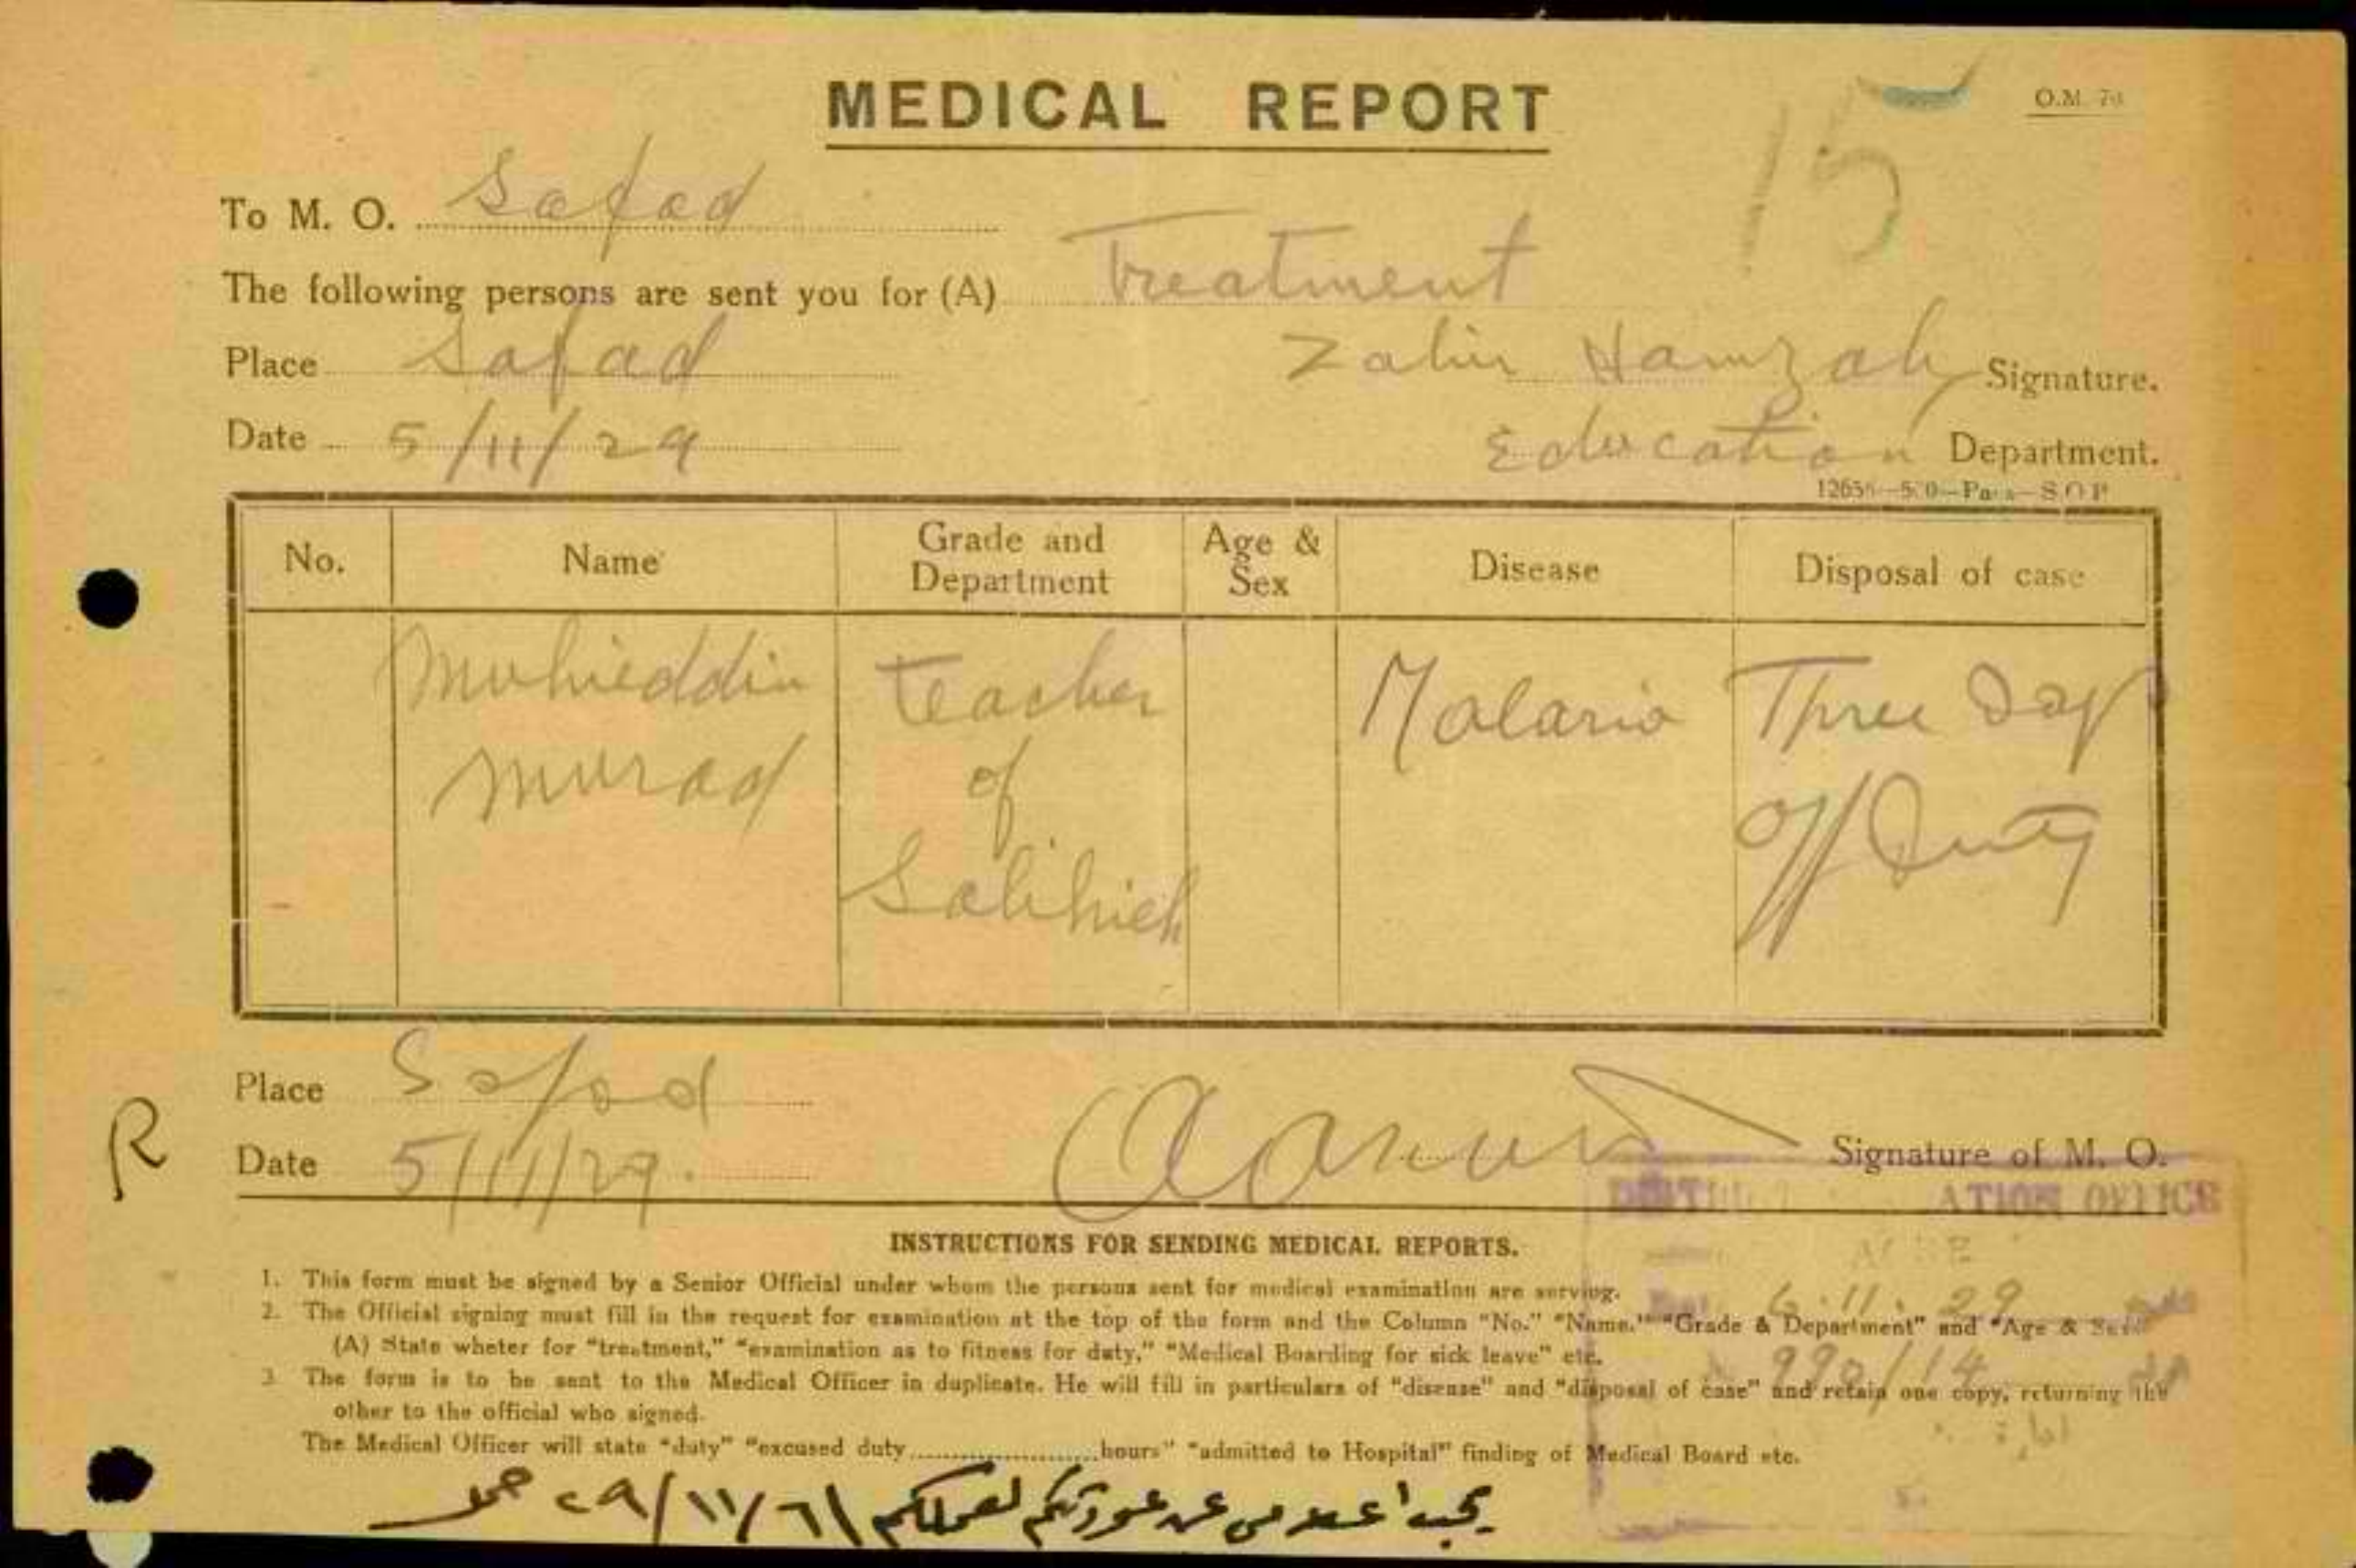 MEDICAL REPORT
15
To M. O. Safad
The following persons are sent you for (A) Treatment
Place Safad
Zahir Hamzah Signature.
Date 5/11/29
Education Department.
No. Name Grade and Department Age & Sex Disease Disposal of case
Muhieddin Teacher Malaria Three Days
Murad of off Duty
Salihieh
Place Safad
R
Date 5/11/29.
Signature of M. O.
ATION OFFICE
INSTRUCTIONS FOR SENDING MEDICAL REPORTS.
1. This form must be signed by a Senior Official under whom the persons sent for medical examination are serving.
6.11.29
2. The Official signing must fill in the request for examination at the top of the form and the Column "No." "Name." "Grade & Department" and "Age & Sex"
(A) State wheter for "treatment," "examination as to fitness for duty," "Medical Boarding for sick leave" etc.
990/14
3. The form is to be sent to the Medical Officer in duplicate. He will fill in particulars of "disease" and "disposal of case" and retain one copy, returning the
other to the official who signed.
The Medical Officer will state "duty" "excused duty......................hours" "admitted to Hospital" finding of Medical Board etc.
يجب اعلامي عن عودتكم لعملكم ٢٩/١١/٦